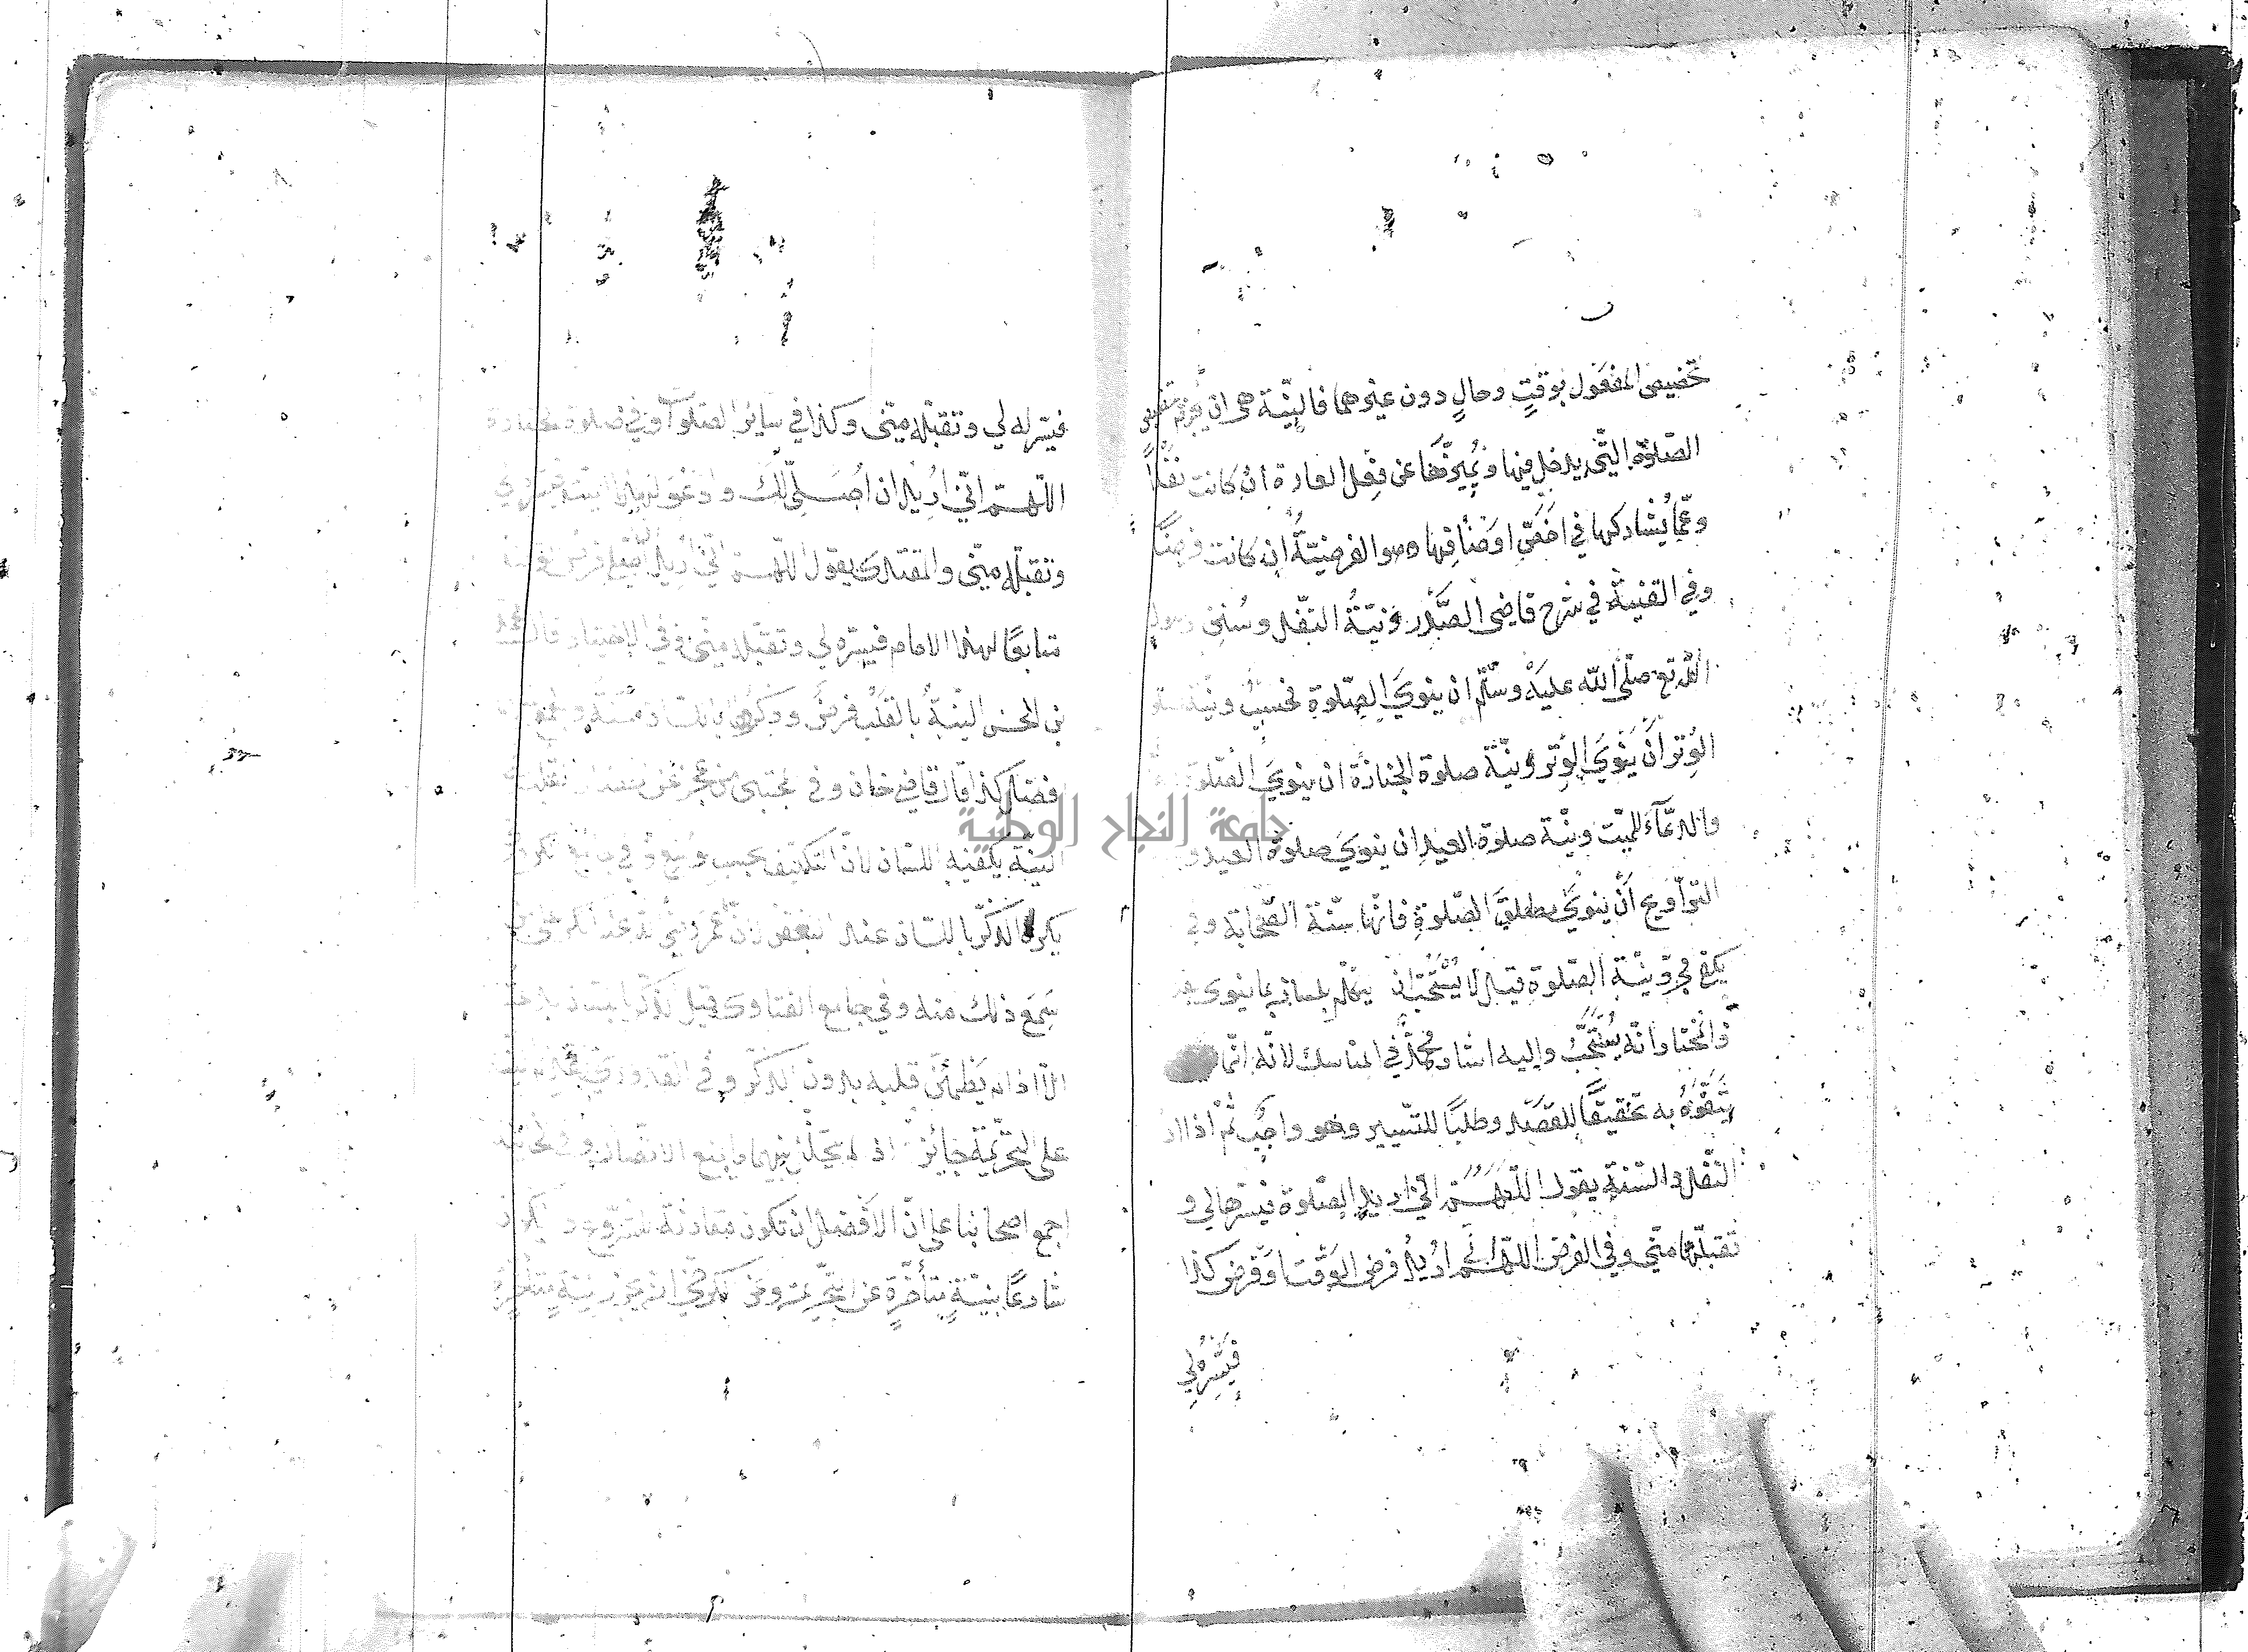 تخصيص المفعول بوقتٍ وحالٍ دون غيرهما فالنيّة هى ان يجزم تخصيص
الصّلوة الّتى يدخل فيها ويميّزها عن فعل العادة ان كانت نفلًا
وعمّا يُشاركها في اخصّ اوصافها وهو الفرضيّةُ ان كانت فرضًا
وفي القنية في شرح قاضى الصّدر ونيّةُ النّفل وسُنن رسول
اللّه تع صلّى اللّه عليه وسلّم ان ينوي الصّلوة فحسبُ ونيّة
الوِتر أن ينوي الوتر ونيّة صلوة الجنازة ان ينوي الصّلوة
والدّعآء للميّت ونيّة صلوة العيد ان ينوي صلوة العيد و
التّراويح أن ينوي مطلق الصّلوة فانّها سنّة الصّحابة وفي
يكفي مجرّد نيّة الصّلوة قيل لا يُستحبّ ان يتكلّم بلسانه بما ينوى
والمختار انّه يُستحبُّ واليه اشار محمّدٌ في المناسك لانّه انّما
يتفوّهُ به تحقيقًا للقصد وطلبًا للتّيسير وهو واجبٌ ثمّ اذا
النّفل والسّنة يقول اللّهمّ انّي اريد الصّلوة فيسّرها لي و
تقبلّها منّي وفي الفرض اللّهمّ انّي اريد فرض الوقت او فرض كذا
فيسّره لي
فيسّره لي وتقبّله منّى وكذا في سائر الصّلوات وفي صلوة الجنازة
اللّهمّ انّي اريد ان اُصلّي لك وادعو لهذا الميّت فيسّره لي
وتقبّله منّى والمقتدى يقول اللّهمّ انّي اريد أن اصلّي فرض
متابعًا لهذا الامام فيسّره لي وتقبّله منّى وفي الاختيار قال محمّد
بن الحسن النيّةُ بالقلب فرضٌ وذكرها باللّسان سُنّةٌ والجمع
افضل كذا قال قاضي خان وفي مجتبى من عجز عن
النيّة يكفيه اللّسان لانّ التكليف بحسب الوسع وفي
يكره الذّكر باللّسان عند البعض لانّ عمر
سَمع ذلك منه وفي جامع الفتاوى قيل
الّا اذا لم يطمئنّ قلبه بدون الذّكر وفي القدوري
على التّحريمة جائز اذ لم يتخلّل بينهما ما يمنع الاتّصال وفي
اجمع اصحابنا على انّ الافضل ان تكون مقارنة للشّروع ولا يكون
شارعًا بنيّةٍ متأخّرةٍ عن التّحريمة وعن الكرخي انّه يجوز بنيّةٍ متأخّرةٍ
جامعة النجاح الوطنية